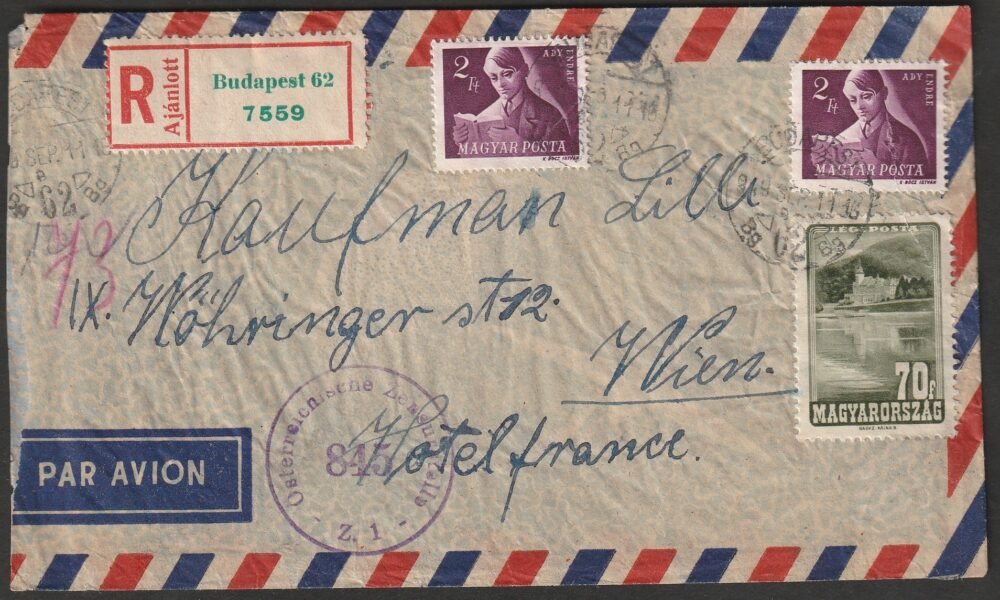 R Ajánlott
Budapest 62
7559
2 Ft
ADY ENDRE
MAGYAR POSTA
2 Ft
ADY ENDRE
MAGYAR POSTA
LÉGI POSTA
70f
MAGYARORSZÁG
62
Kaufman Lilli
IX. Nöhringer st 12.
Wien.
Hotel france.
Österreichische Zensurstelle
845
- Z. 1 -
PAR AVION